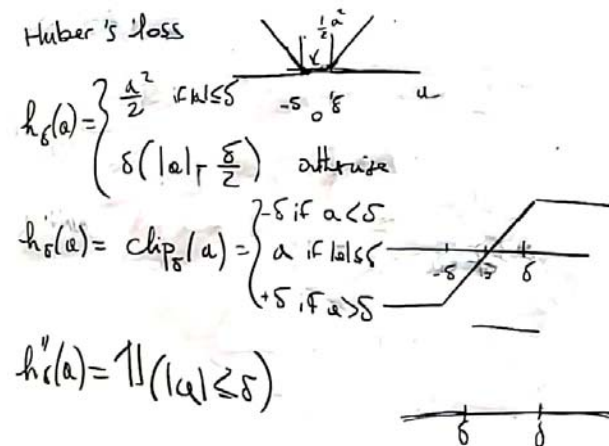 Huber's loss
½ a²
-δ 0 δ a
h_δ(a) = { a²/2 if |a| ≤ δ
δ(|a| - δ/2) otherwise
h'_δ(a) = clip_δ(a) = { -δ if a < δ
a if |a| ≤ δ
+δ if a > δ
-δ δ
h''_δ(a) = 1(|a| ≤ δ)
δ δ